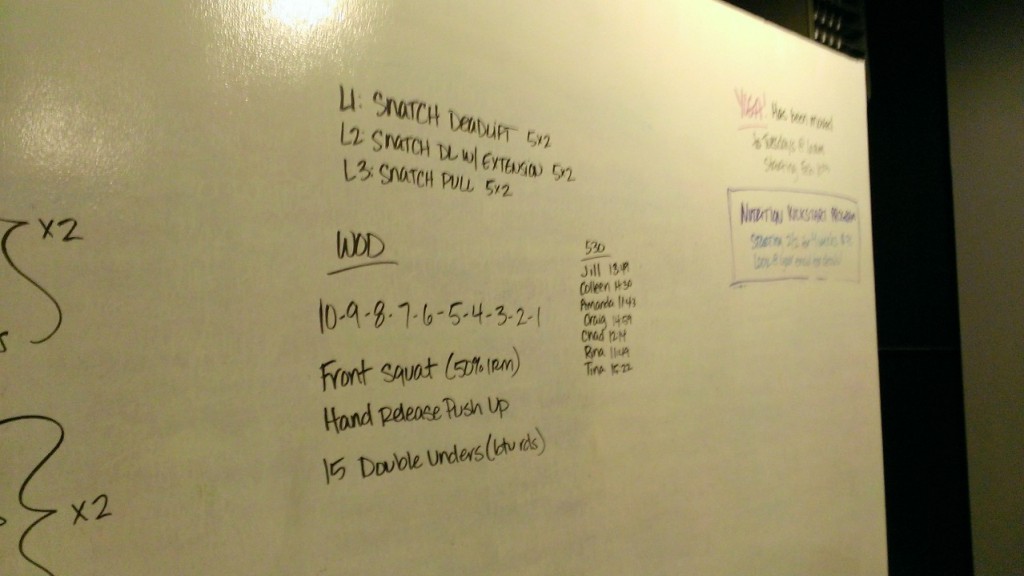 x2
x2
L1: SNATCH DEADLIFT 5x2
L2 SNATCH DL W/ EXTENSION 5x2
L3: SNATCH PULL 5x2
WOD
10-9-8-7-6-5-4-3-2-1
Front squat (50% 1RM)
Hand Release Push Up
15 Double Unders (btw rds)
530
Jill
Colleen
Amanda 11:43
Craig
Chad
Rina
Tina 15:22
YOGA! Has been moved
to Tuesdays @
Starting Feb
NUTRITION KICKSTART PROGRAM
Starting